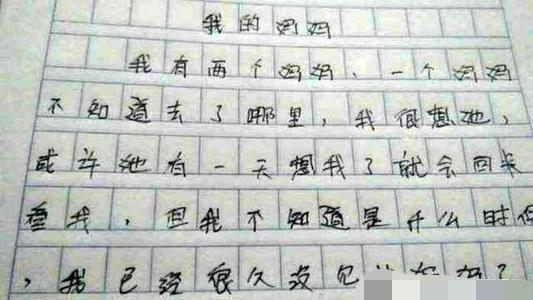 我的妈妈
我有两个妈妈、一个妈妈
不知道去了哪里，我很想池，
或许池有一天想我了就会回来
看我，但我不知道是什么时
，我已经很久没见妈了